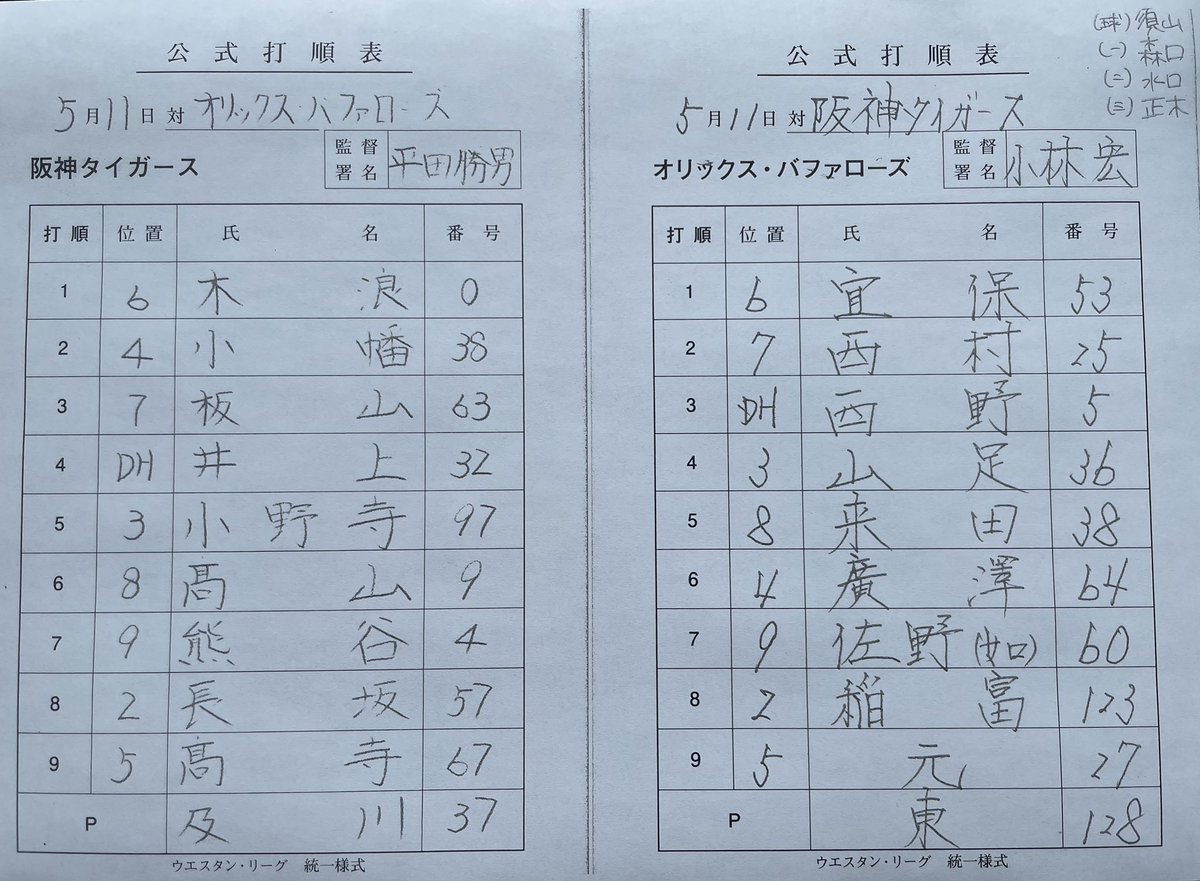 公式打順表
5月11日対オリックス・バファローズ
阪神タイガース 監督署名 平田勝男
打順 位置 氏名 番号
1 6 木浪 0
2 4 小幡 38
3 7 板山 63
4 DH 井上 32
5 3 小野寺 97
6 8 髙山 9
7 9 熊谷 4
8 2 長坂 57
9 5 髙寺 67
P 及川 37
ウエスタン・リーグ 統一様式
(球)須山
(一)森口
(二)水口
(三)正木
公式打順表
5月11日対阪神タイガース
オリックス・バファローズ 監督署名 小林宏
打順 位置 氏名 番号
1 6 宜保 53
2 7 西村 25
3 DH 西野 5
4 3 山足 36
5 8 来田 38
6 4 廣澤 64
7 9 佐野(如) 60
8 2 稲富 123
9 5 元 27
P 東 128
ウエスタン・リーグ 統一様式